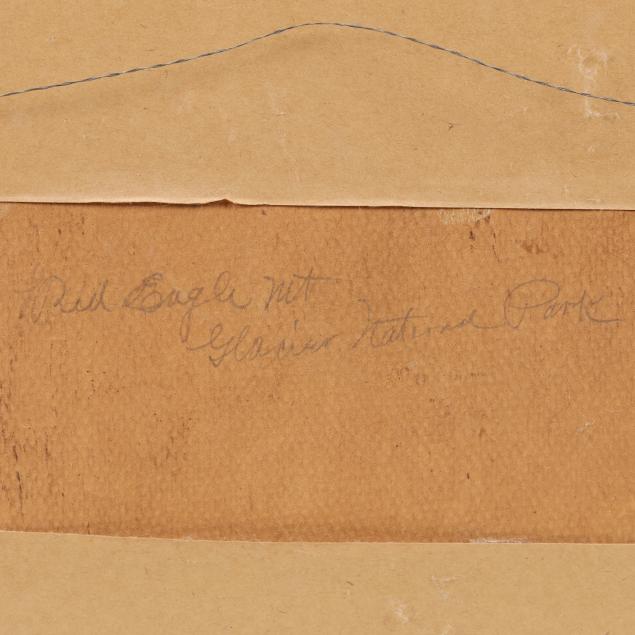 Red Eagle Mt
Glacier National Park